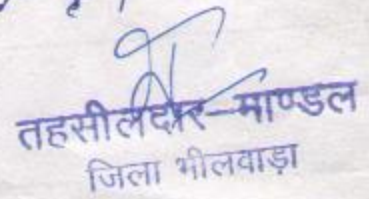 तहसीलदार-माण्डल
जिला भीलवाड़ा